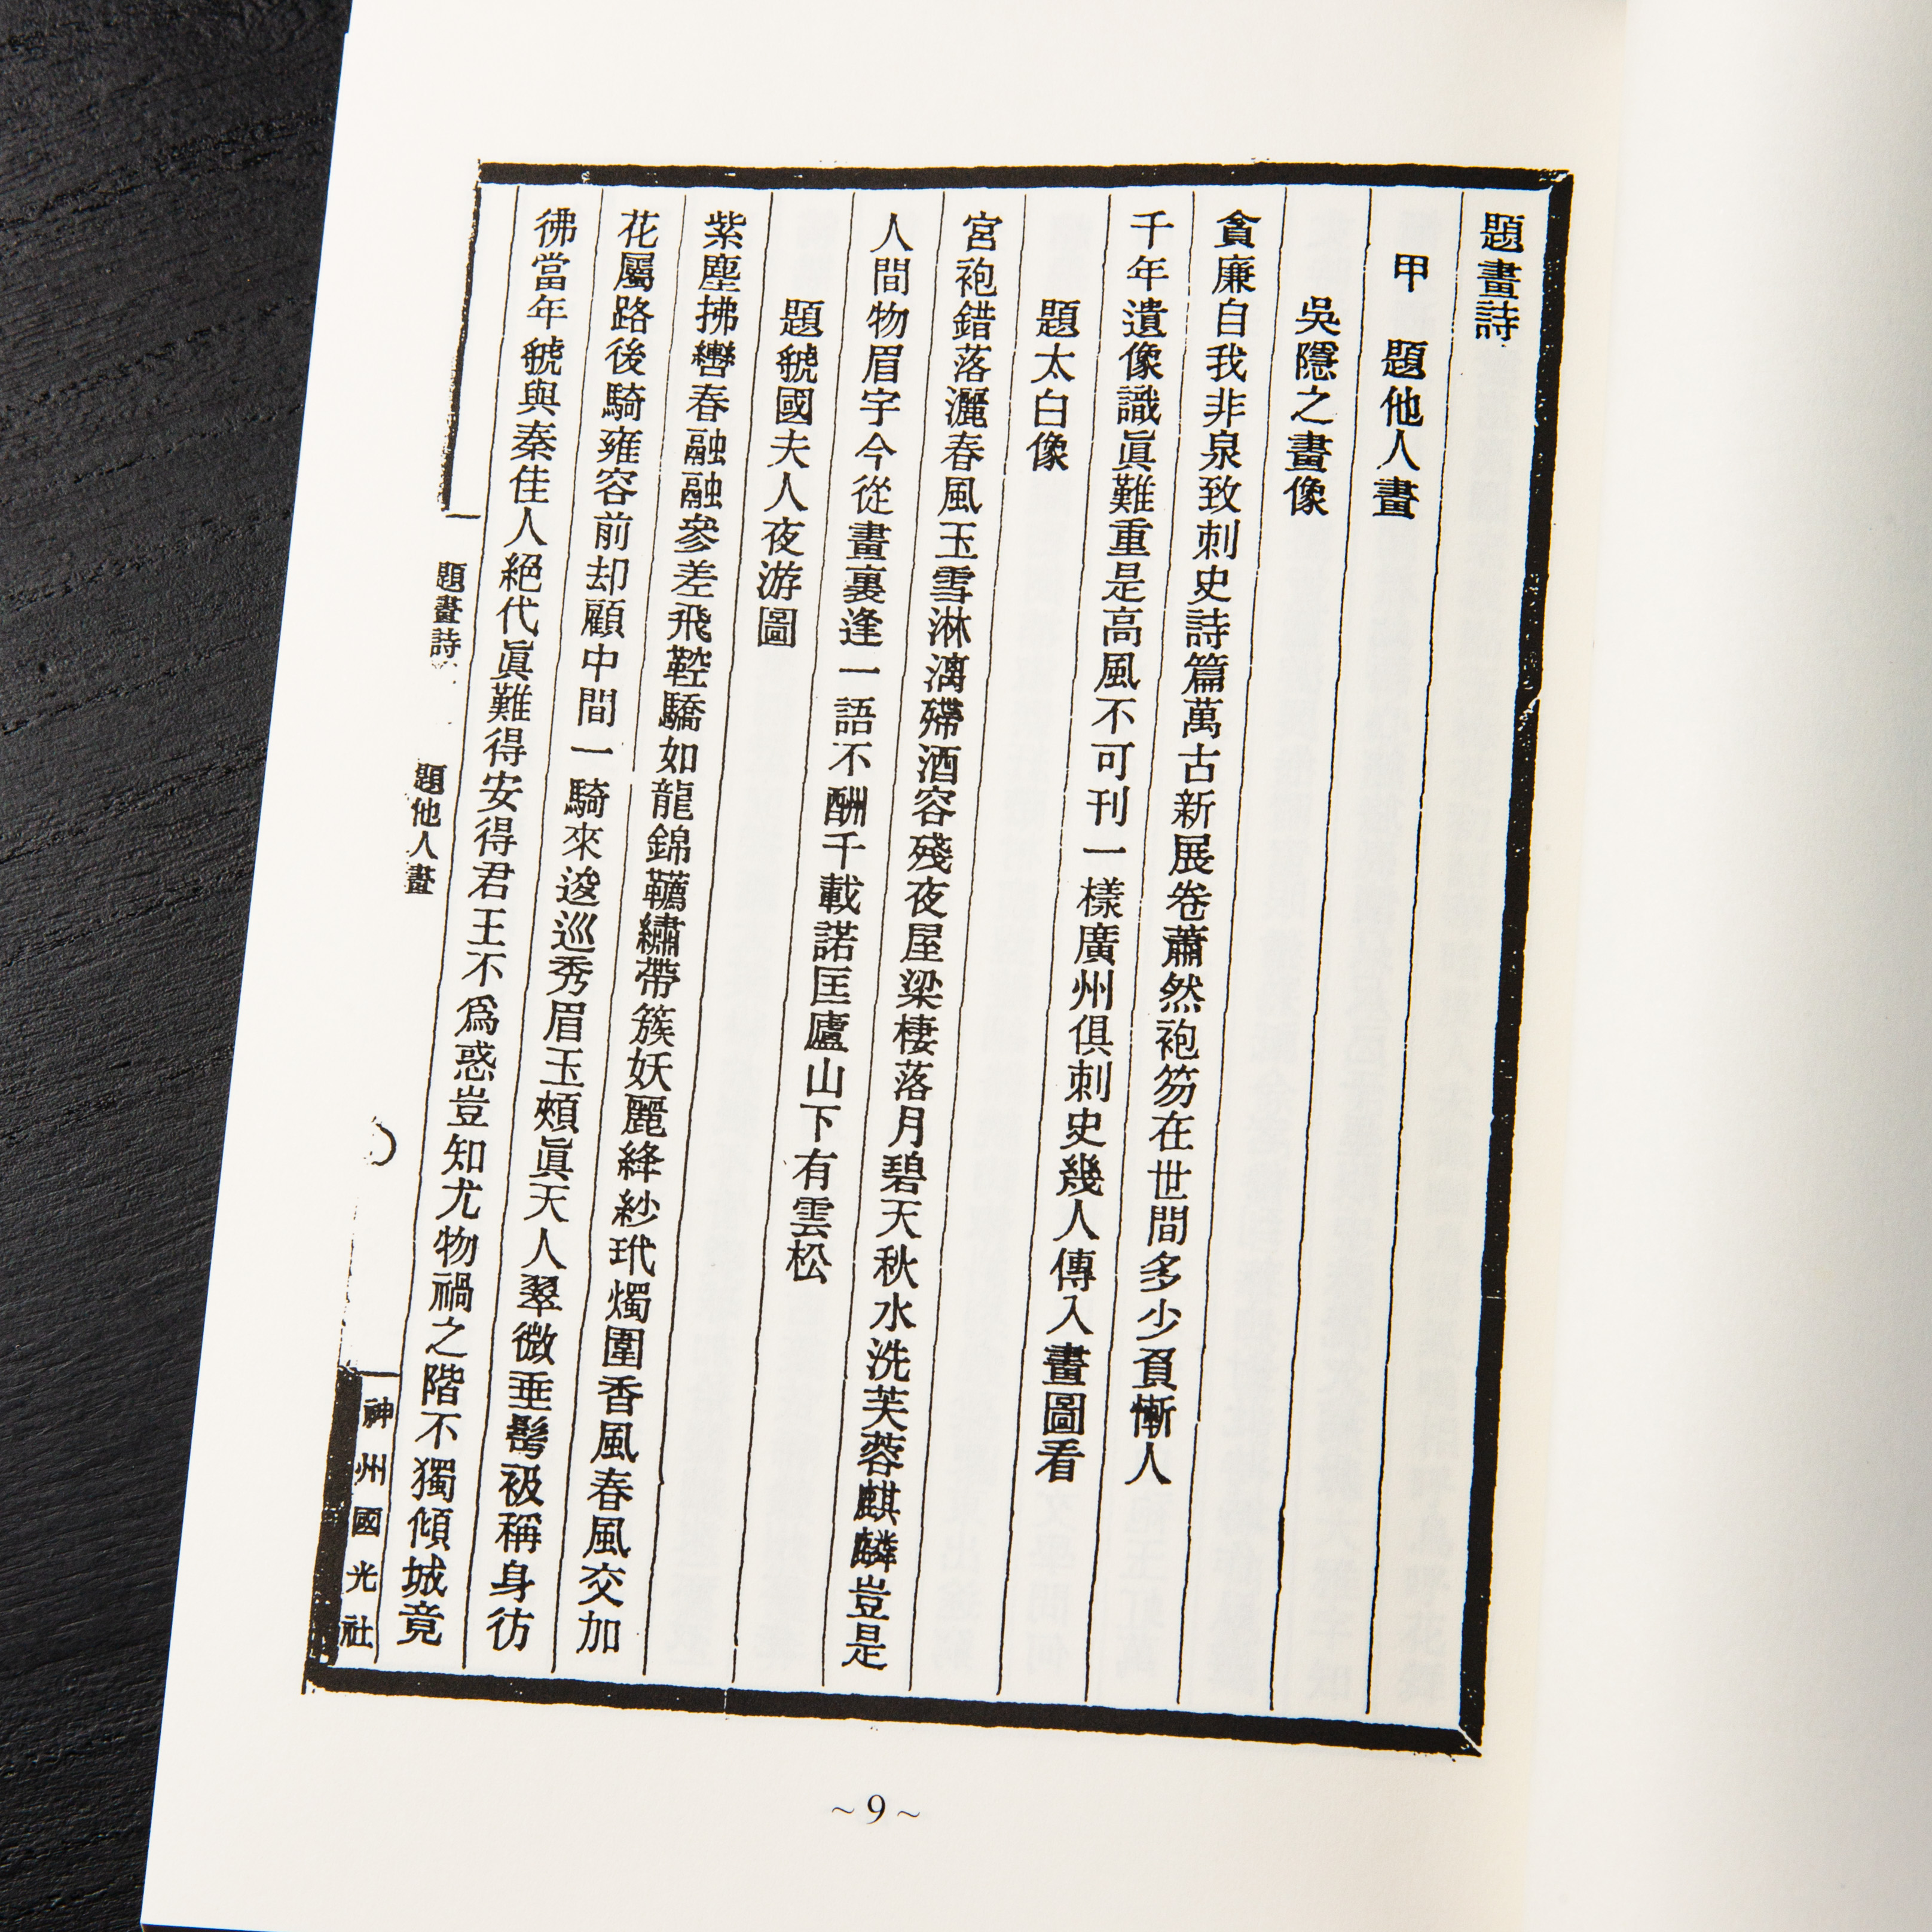 題畫詩
甲　題他人畫
吳隱之畫像
貪廉自我非泉致刺史詩篇萬古新展卷蕭然袍笏在世間多少負慚人
千年遺像識眞難重是高風不可刊一樣廣州俱刺史幾人傳入畫圖看
題太白像
宮袍錯落灑春風玉雪淋漓殢酒容殘夜屋梁棲落月碧天秋水洗芙蓉麒麟豈是
人間物眉宇今從畫裏逢一語不酬千載諾匡廬山下有雲松
題虢國夫人夜游圖
紫塵拂轡春融融參差飛鞚驕如龍錦韉繡帶簇妖麗絳紗玳燭圍香風春風交加
花屬路後騎雍容前却顧中間一騎來逡巡秀眉玉頰眞天人翠微垂䯻衱稱身彷
彿當年虢與秦佳人絕代眞難得安得君王不爲惑豈知尤物禍之階不獨傾城竟
題畫詩　題他人畫
神州國光社
~ 9 ~